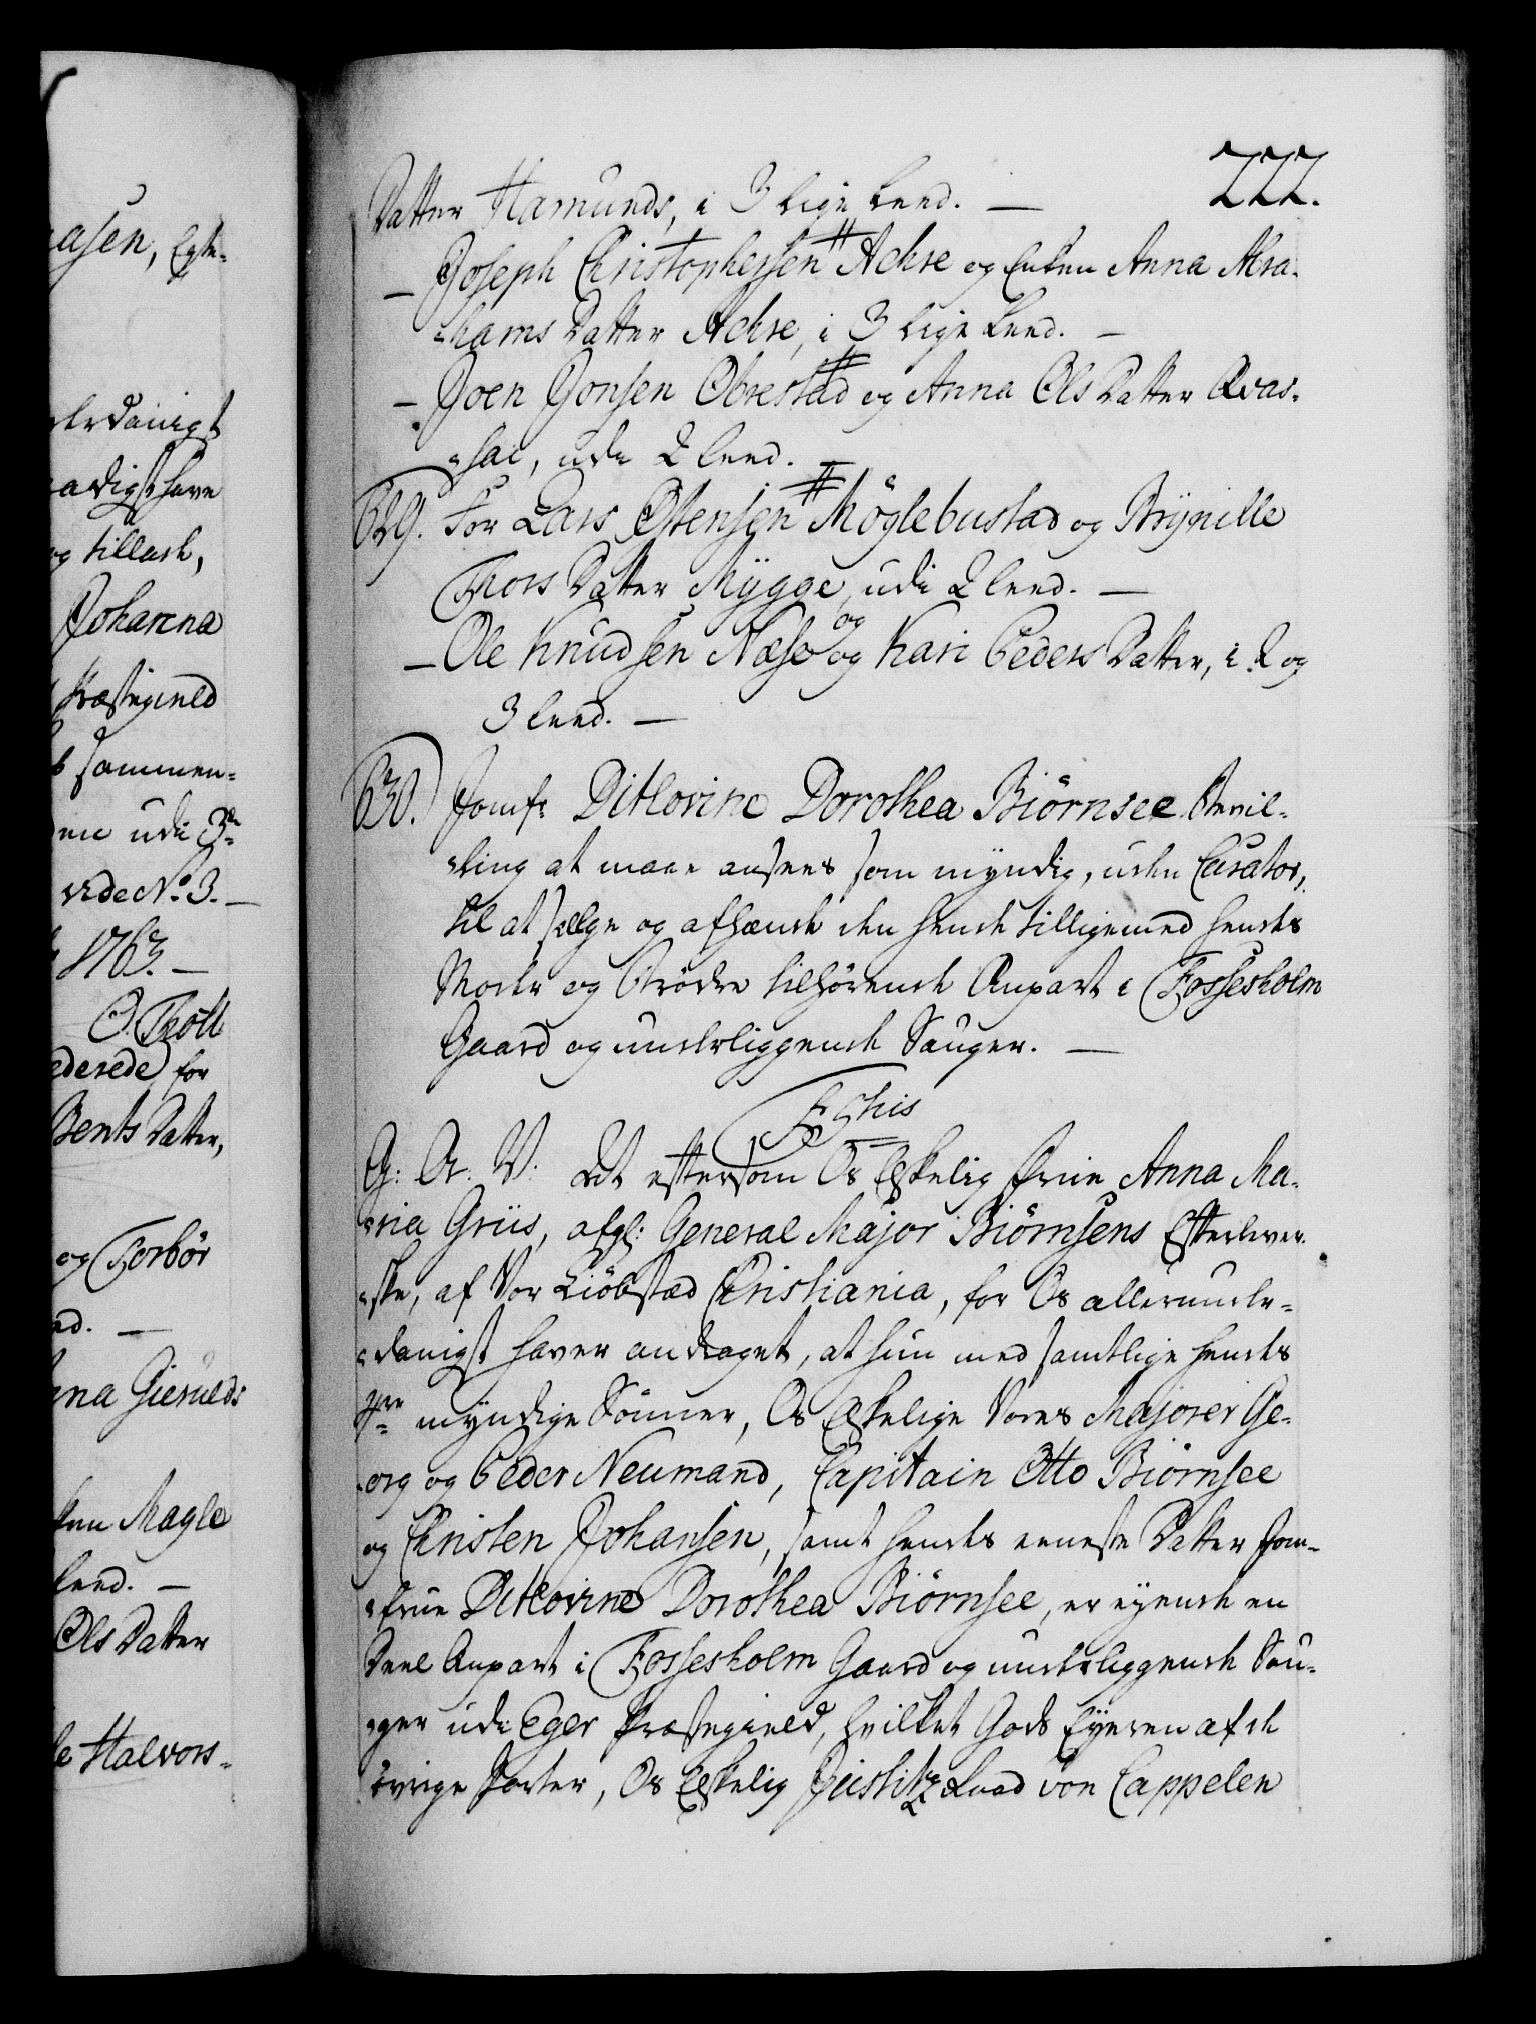 222.
Datter Hamunds, i 3 lige Leed. —
— Joseph Christophersen # Achre og Enken Anna Abra-
hams Datter Achre, i 3 lige Leed. —
— Joen Jonsen Obrestad # og Anna Ols Datter Qvas-
sai, udi 2 Leed. —
629. For Lars Ostensen # Möglebustad og Brynille
Thors Datter Mÿgge, udi 2 Leed. —
— Ole Knudsen Næse og og Kari Peders Datter, i 2 og
3 Leed. —
630. Jomfr Ditlovine Dorothea Biörnsee Bevil-
ling at maae ansees som myndig, uden Curator,
til at sælge og afhænde den hende tilligemed hendes
Moder og Brödre tilhörende Anpart i Fossesholm
Gaard og underliggende Sauger. —
F 5this
G: A: V: At eftersom Os Elskelig Frue Anna Ma-
ria Griis, afgl: General Major Biörnsens Efterlever-
ske, af Vor Kiöbstad Christiania, for Os allerunder-
danigst haver andraget, at hun med samtlige hendes
4re myndige Sönner, Os Elskelige Vores Majorer Ge-
org og Peder Neumand, Capitain Otto Biörnsee
og Christen Johansen, samt hendes eeneste Datter Jom-
frue Ditlovine Dorothea Biörnsee, er eyende en
Deel Anpart i Fossesholm Gaard og underliggende Sau-
ger udi Eger Præstegield, hvilket Gods Eyeren af de
övrige Parter, Os Elskelig Justitz Raad von Cappelen
asen, Egte-
erdanigt
adigst have
og tillade,
Johanna
Præstegield
sammen-
en udi 3die
vide No. 3. —
1763. —
O. Thott
ederede for
Bents Datter,
og Forbör
ed. —
na Gierulds
ken Magle
Leed. —
Ols Datter
le Halvors-